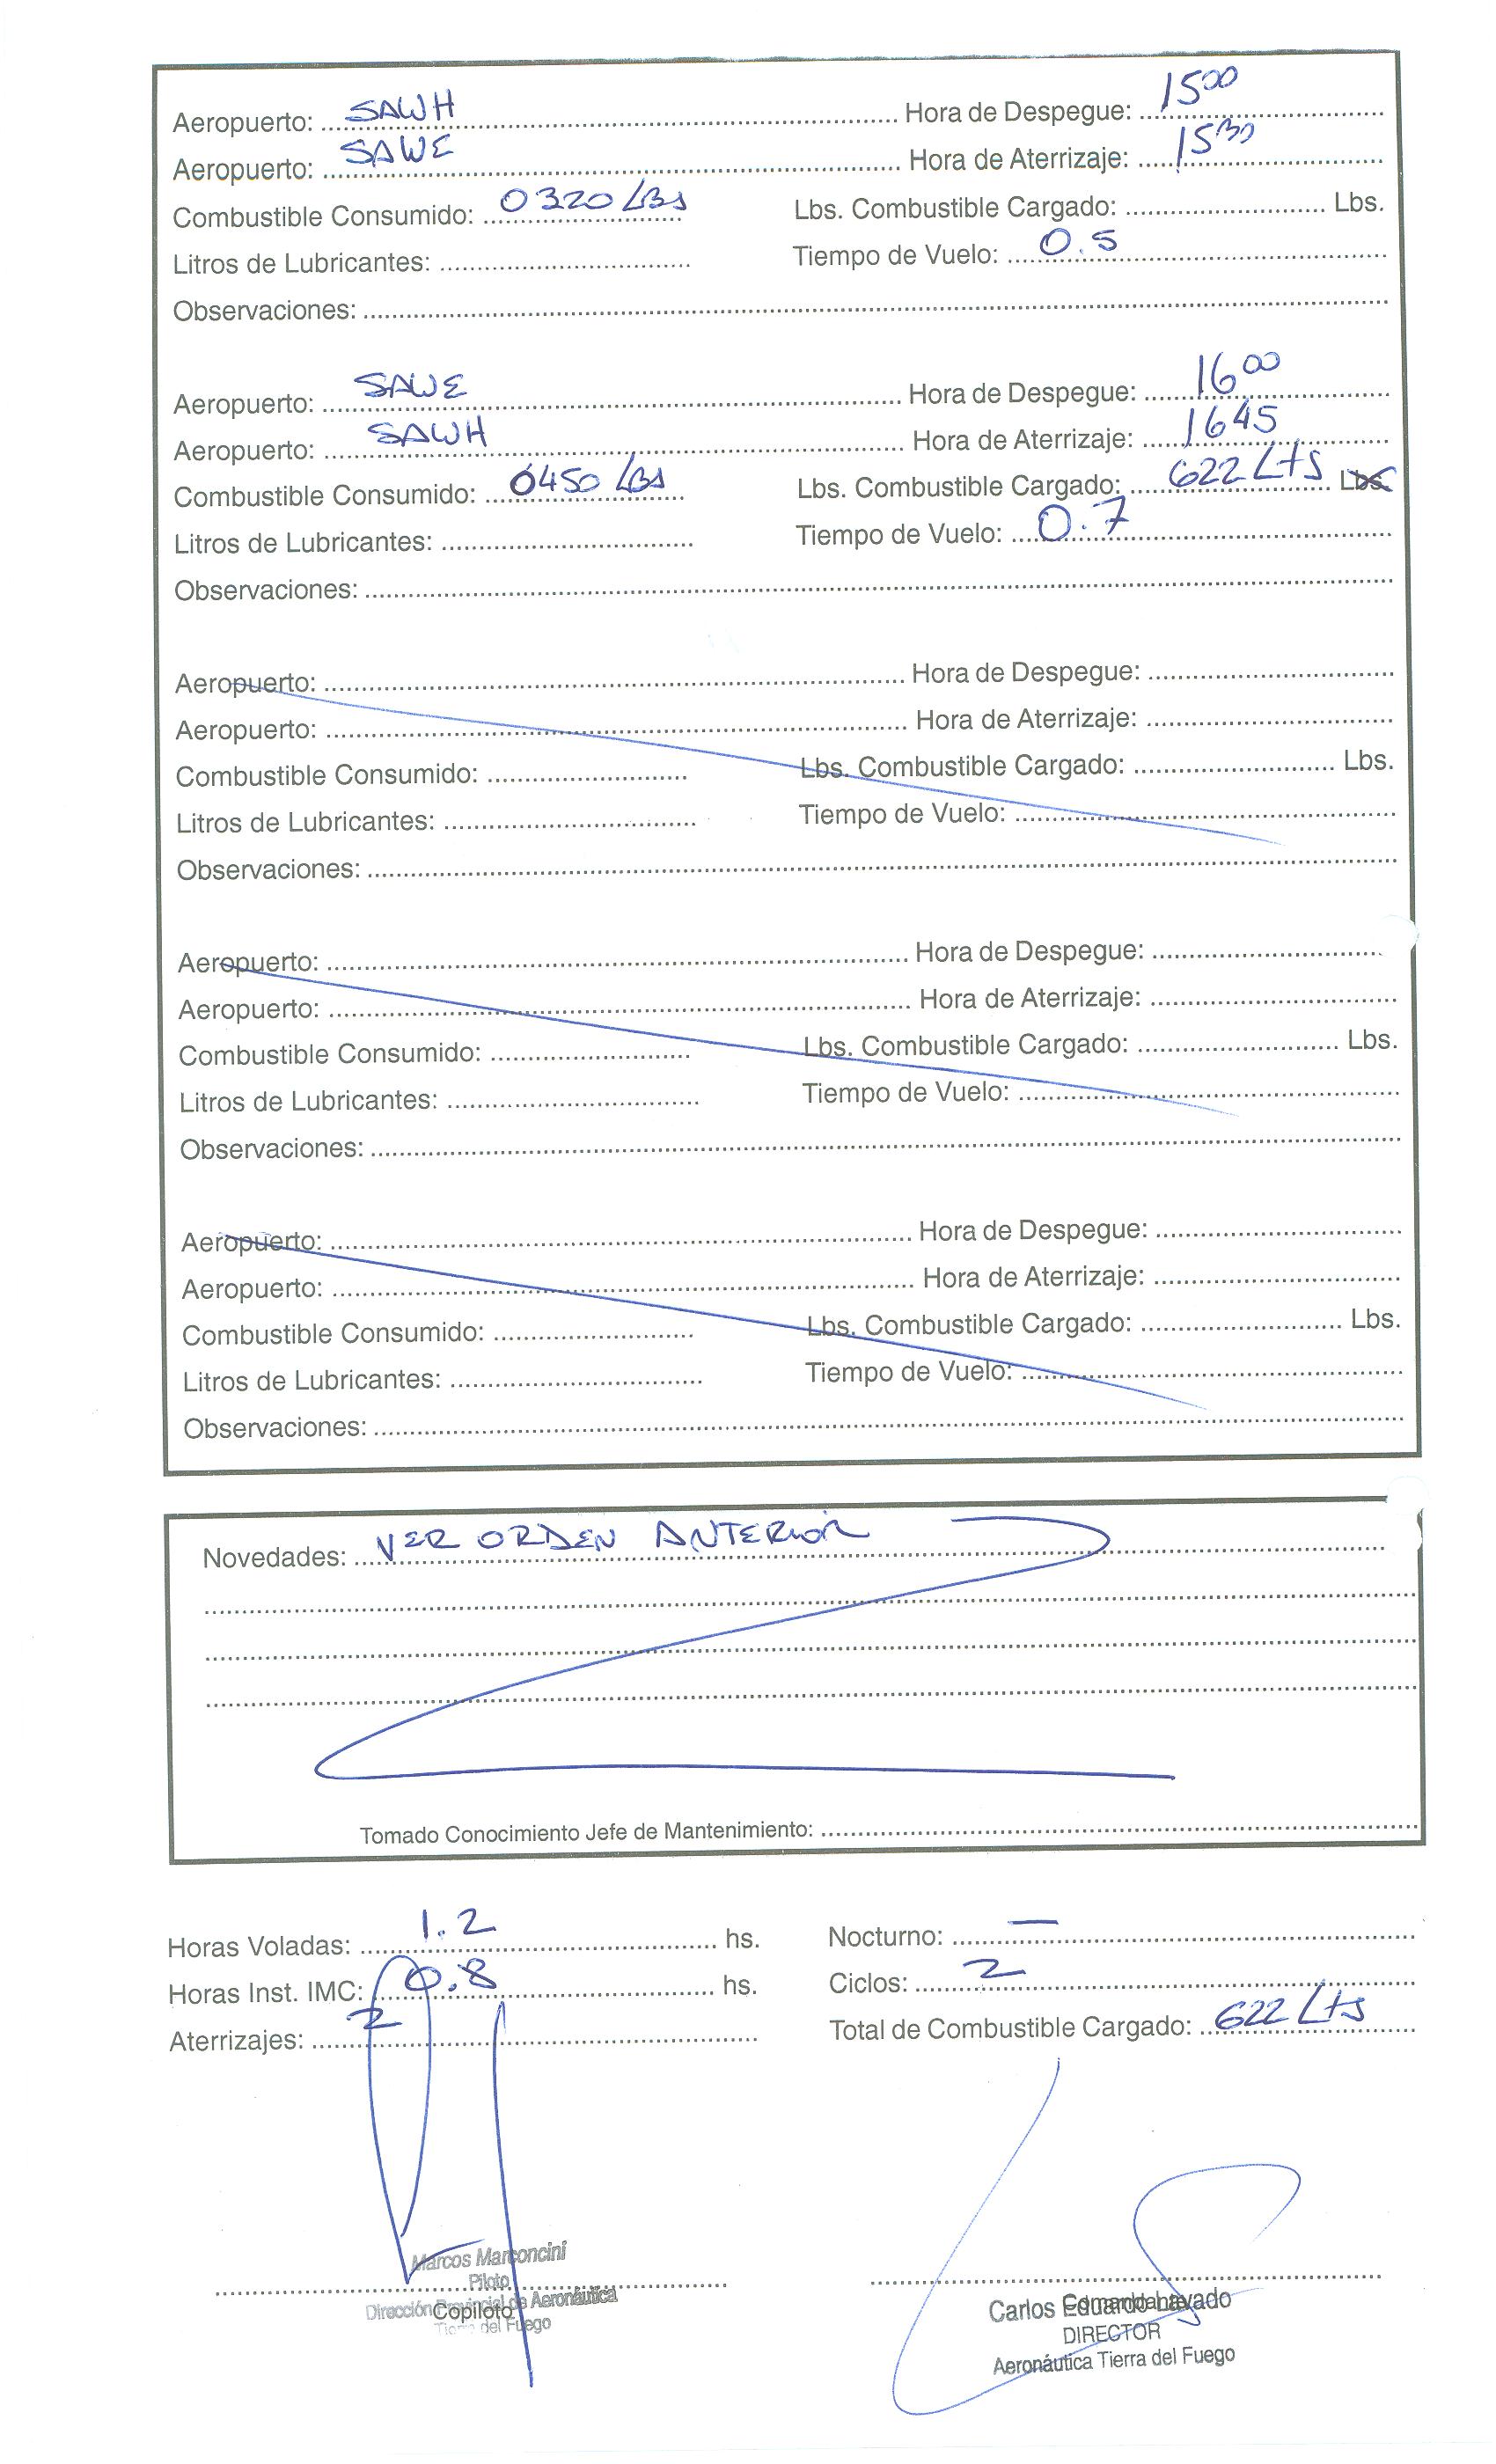 Aeropuerto: SAWH Hora de Despegue: 1500
Aeropuerto: SAWE Hora de Aterrizaje: 1530
Combustible Consumido: 0320 LBS Lbs. Combustible Cargado: Lbs.
Litros de Lubricantes: Tiempo de Vuelo: 0.5
Observaciones:
Aeropuerto: SAWE Hora de Despegue: 1600
Aeropuerto: SAWH Hora de Aterrizaje: 1645
Combustible Consumido: 0450 LBS Lbs. Combustible Cargado: 622 Lts Lbs.
Litros de Lubricantes: Tiempo de Vuelo: 0.7
Observaciones:
Aeropuerto: Hora de Despegue:
Aeropuerto: Hora de Aterrizaje:
Combustible Consumido: Lbs. Combustible Cargado: Lbs.
Litros de Lubricantes: Tiempo de Vuelo:
Observaciones:
Aeropuerto: Hora de Despegue:
Aeropuerto: Hora de Aterrizaje:
Combustible Consumido: Lbs. Combustible Cargado: Lbs.
Litros de Lubricantes: Tiempo de Vuelo:
Observaciones:
Aeropuerto: Hora de Despegue:
Aeropuerto: Hora de Aterrizaje:
Combustible Consumido: Lbs. Combustible Cargado: Lbs.
Litros de Lubricantes: Tiempo de Vuelo:
Observaciones:
Novedades: VER ORDEN ANTERIOR
Tomado Conocimiento Jefe de Mantenimiento:
Horas Voladas: 1.2 hs. Nocturno: —
Horas Inst. IMC: 0.8 hs. Ciclos: 2
Aterrizajes: 2 Total de Combustible Cargado: 622 Lts
Marcos Marconcini
Piloto
Dirección Provincial de Aeronáutica
Copiloto
Tierra del Fuego
Comandante
Carlos Eduardo Lavado
DIRECTOR
Aeronáutica Tierra del Fuego